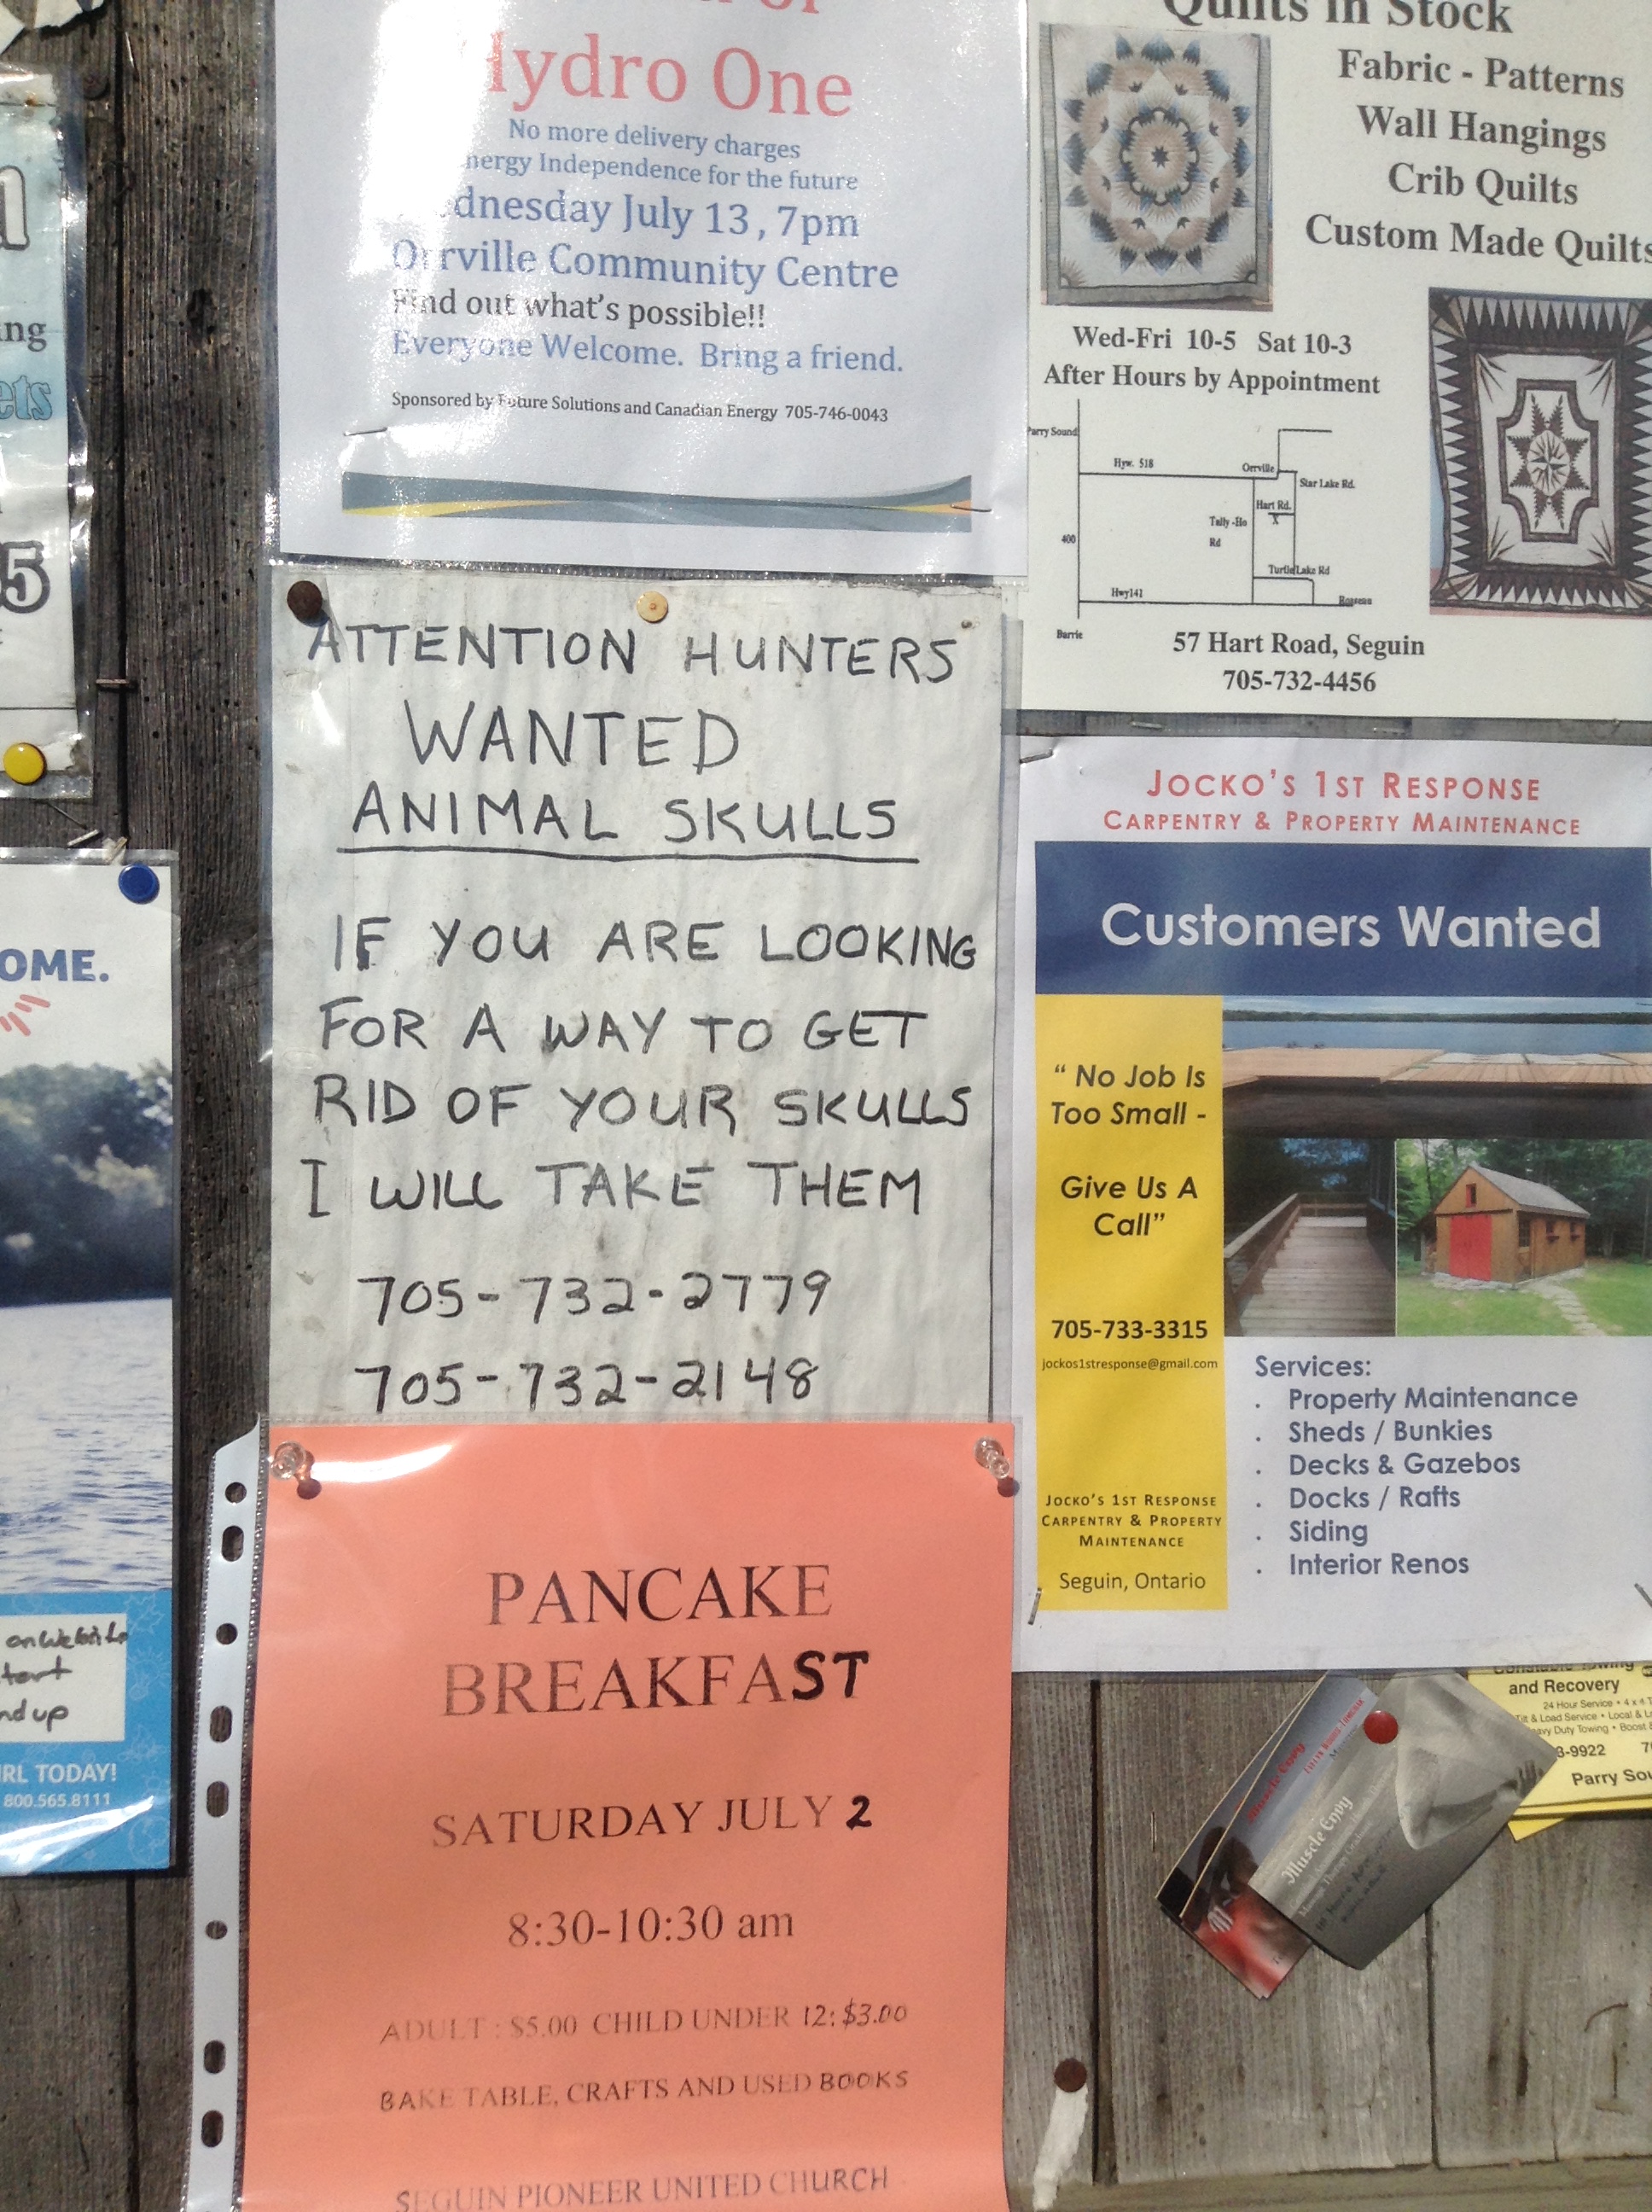 of
Hydro One
No more delivery charges
Energy Independence for the future
Wednesday July 13, 7pm
Orrville Community Centre
Find out what's possible!!
Everyone Welcome. Bring a friend.
Sponsored by Future Solutions and Canadian Energy 705-746-0043
Quilts in Stock
Fabric - Patterns
Wall Hangings
Crib Quilts
Custom Made Quilts
Wed-Fri 10-5 Sat 10-3
After Hours by Appointment
Parry Sound
Hyw. 518
Orrville
Star Lake Rd.
Hart Rd.
X
Tally-Ho
Rd
400
Turtle Lake Rd
Hwy141
Rosseau
Barrie
57 Hart Road, Seguin
705-732-4456
ATTENTION HUNTERS
WANTED
ANIMAL SKULLS
IF YOU ARE LOOKING
FOR A WAY TO GET
RID OF YOUR SKULLS
I WILL TAKE THEM
705-732-2779
705-732-2148
JOCKO'S 1ST RESPONSE
CARPENTRY & PROPERTY MAINTENANCE
Customers Wanted
" No Job Is
Too Small -
Give Us A
Call"
705-733-3315
jockos1stresponse@gmail.com
JOCKO'S 1ST RESPONSE
CARPENTRY & PROPERTY
MAINTENANCE
Seguin, Ontario
Services:
. Property Maintenance
. Sheds / Bunkies
. Decks & Gazebos
. Docks / Rafts
. Siding
. Interior Renos
PANCAKE
BREAKFAST
SATURDAY JULY 2
8:30-10:30 am
ADULT : $5.00 CHILD UNDER 12: $3.00
BAKE TABLE, CRAFTS AND USED BOOKS
SEGUIN PIONEER UNITED CHURCH
ng
ets
5
OME.
on website
tart
nd up
RL TODAY!
800.565.8111
Muscle Envy
Muscle Envy
Towing
and Recovery
24 Hour Service • 4 x 4
Tilt & Load Service • Local &
Heavy Duty Towing • Boost
3-9922
Parry Sou